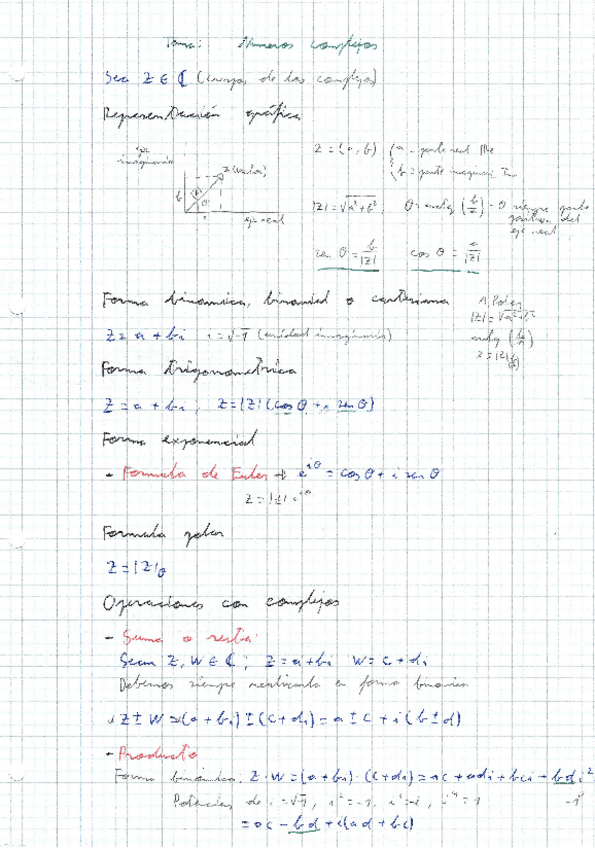 Tema: Números complejos
Sea Z ∈ ℂ (cuerpo de los complejos)
Representación gráfica
eje imaginario
Z = (a, b) (a = parte real Re
(b = parte imaginari Im
b |Z| θ
a eje real
|Z| = √a²+b² ; θ = artg (b/a) → θ siempre parte positiva del eje real
sen θ = b/|Z| cos θ = a/|Z|
Forma binómica, binomial o cartesiana
A Polar
|Z| = √a²+b²
Z = a + bi i = √-1 (unidad imaginaria)
artg (b/a)
Forma trigonométrica
Z = a + bi ; Z = |Z| (cos θ + i sen θ)
Forma exponencial
- Formula de Euler → e^iθ = cos θ + i sen θ
Z = |Z| e^iθ
Formula polar
Z = |Z|θ
Operaciones con complejos
- Suma o resta:
Sean Z, W ∈ ℂ ; Z = a + bi W = c + di
Debemos siempre realizarla en forma binómica
Z ± W = (a + bi) ± (c + di) = a ± c + i (b ± d)
- Producto
Forma binómica: Z · W = (a + bi) · (c + di) = ac + adi + bci + bd i²
Potencias de i = √-1, i² = -1, i³ = -i, i⁴ = 1
= ac - bd + i(ad + bc)